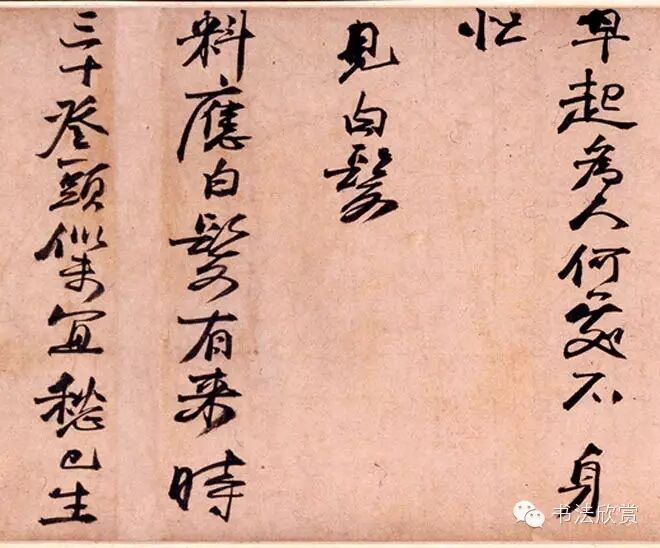 早起為人何處不身
忙
見白髮
料應白髮有来時
三十登頭似未宜愁已生
书法欣赏